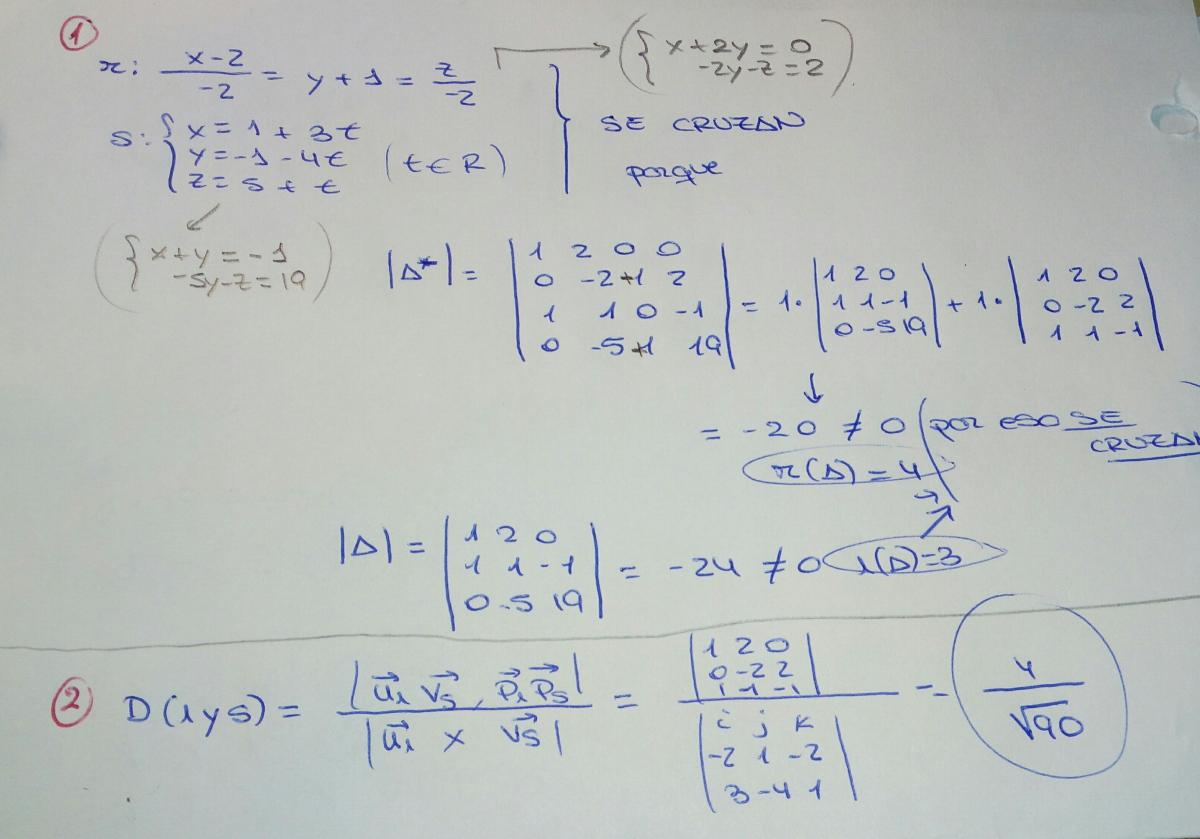 ①
r: x-2/-2 = y+1 = z/-2 → ({x+2y=0
-2y-z=2)
S: {x=1+3t
y=-1-4t (t∈R)
z=5+t
} SE CRUZAN
porque
({x+y=-1
-5y-z=19)
|Δ*| = |1 2 0 0
0 -2+1 2
1 1 0 -1
0 -5+1 19| = 1·|1 2 0
1 1 -1
0 -5 19| + 1·|1 2 0
0 -2 2
1 1 -1|
↓
= -20 ≠ 0 (por eso SE
CRUZAN
r(Δ)=4
|Δ| = |1 2 0
1 1 -1
0 -5 19| = -24 ≠ 0 r(Δ)=3
② D(r y s) = |u⃗r v⃗s, P⃗r P⃗s| / |u⃗r x v⃗s| = |1 2 0
0 -2 2
1 1 -1| / |i j k
-2 1 -2
3 -4 1| = 4/√90